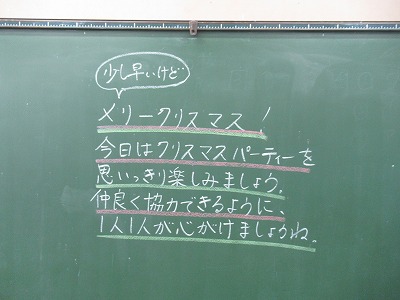 少し早いけど
メリークリスマス！
今日はクリスマスパーティーを
思いっきり楽しみましょう。
仲良く協力できるように、
1人1人が心がけましょうね。